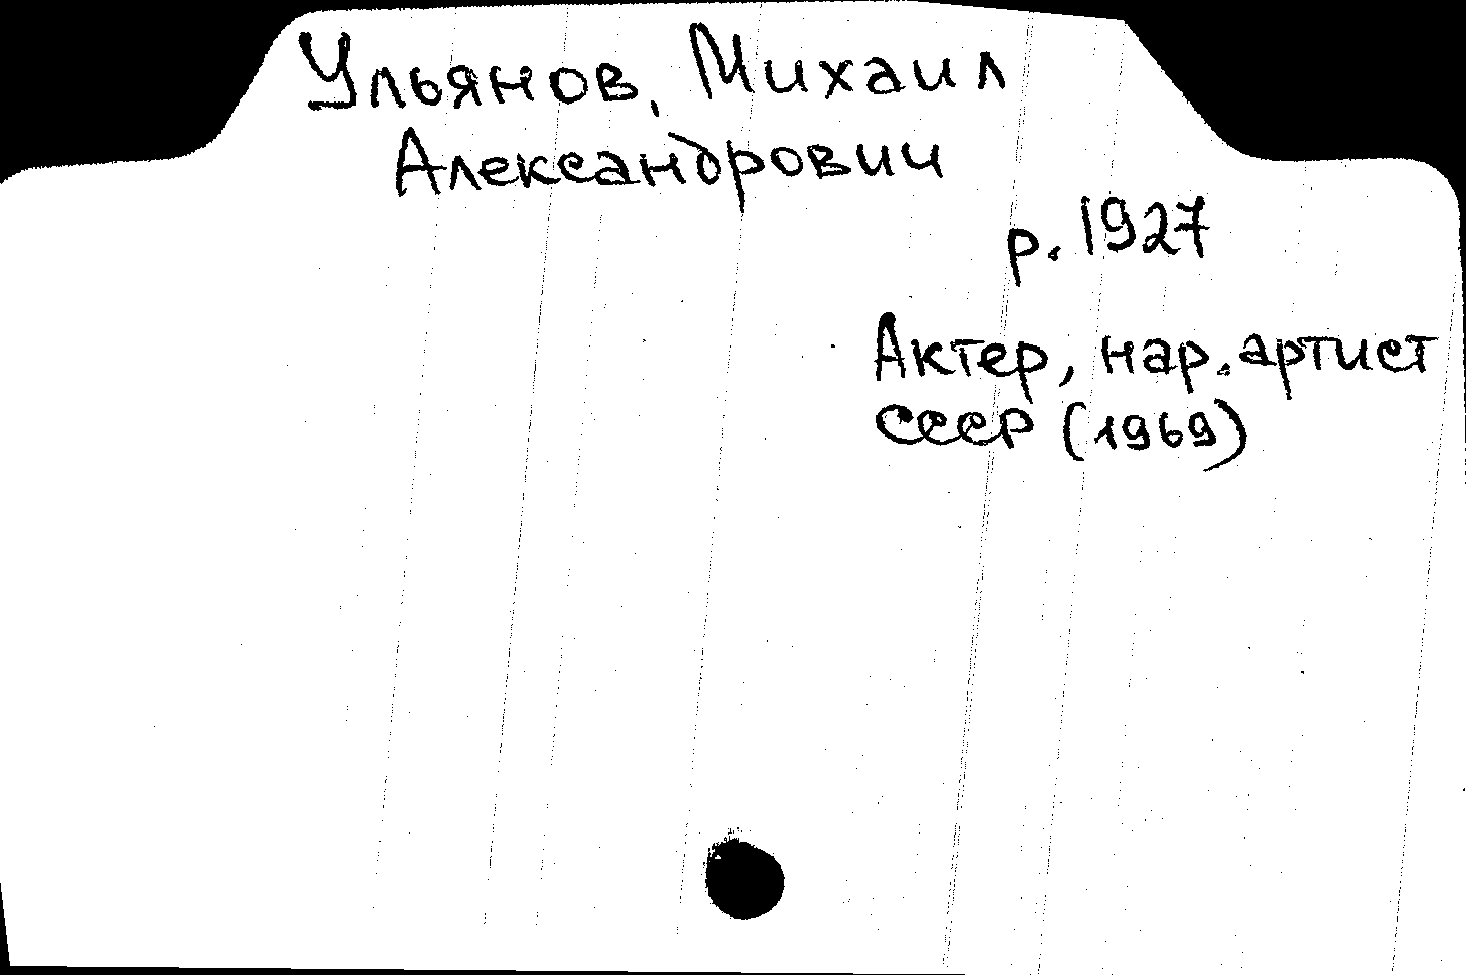 Ульянов, Михаил
Александрович
р. 1927
Актер, нар. артист
СССР (1969)